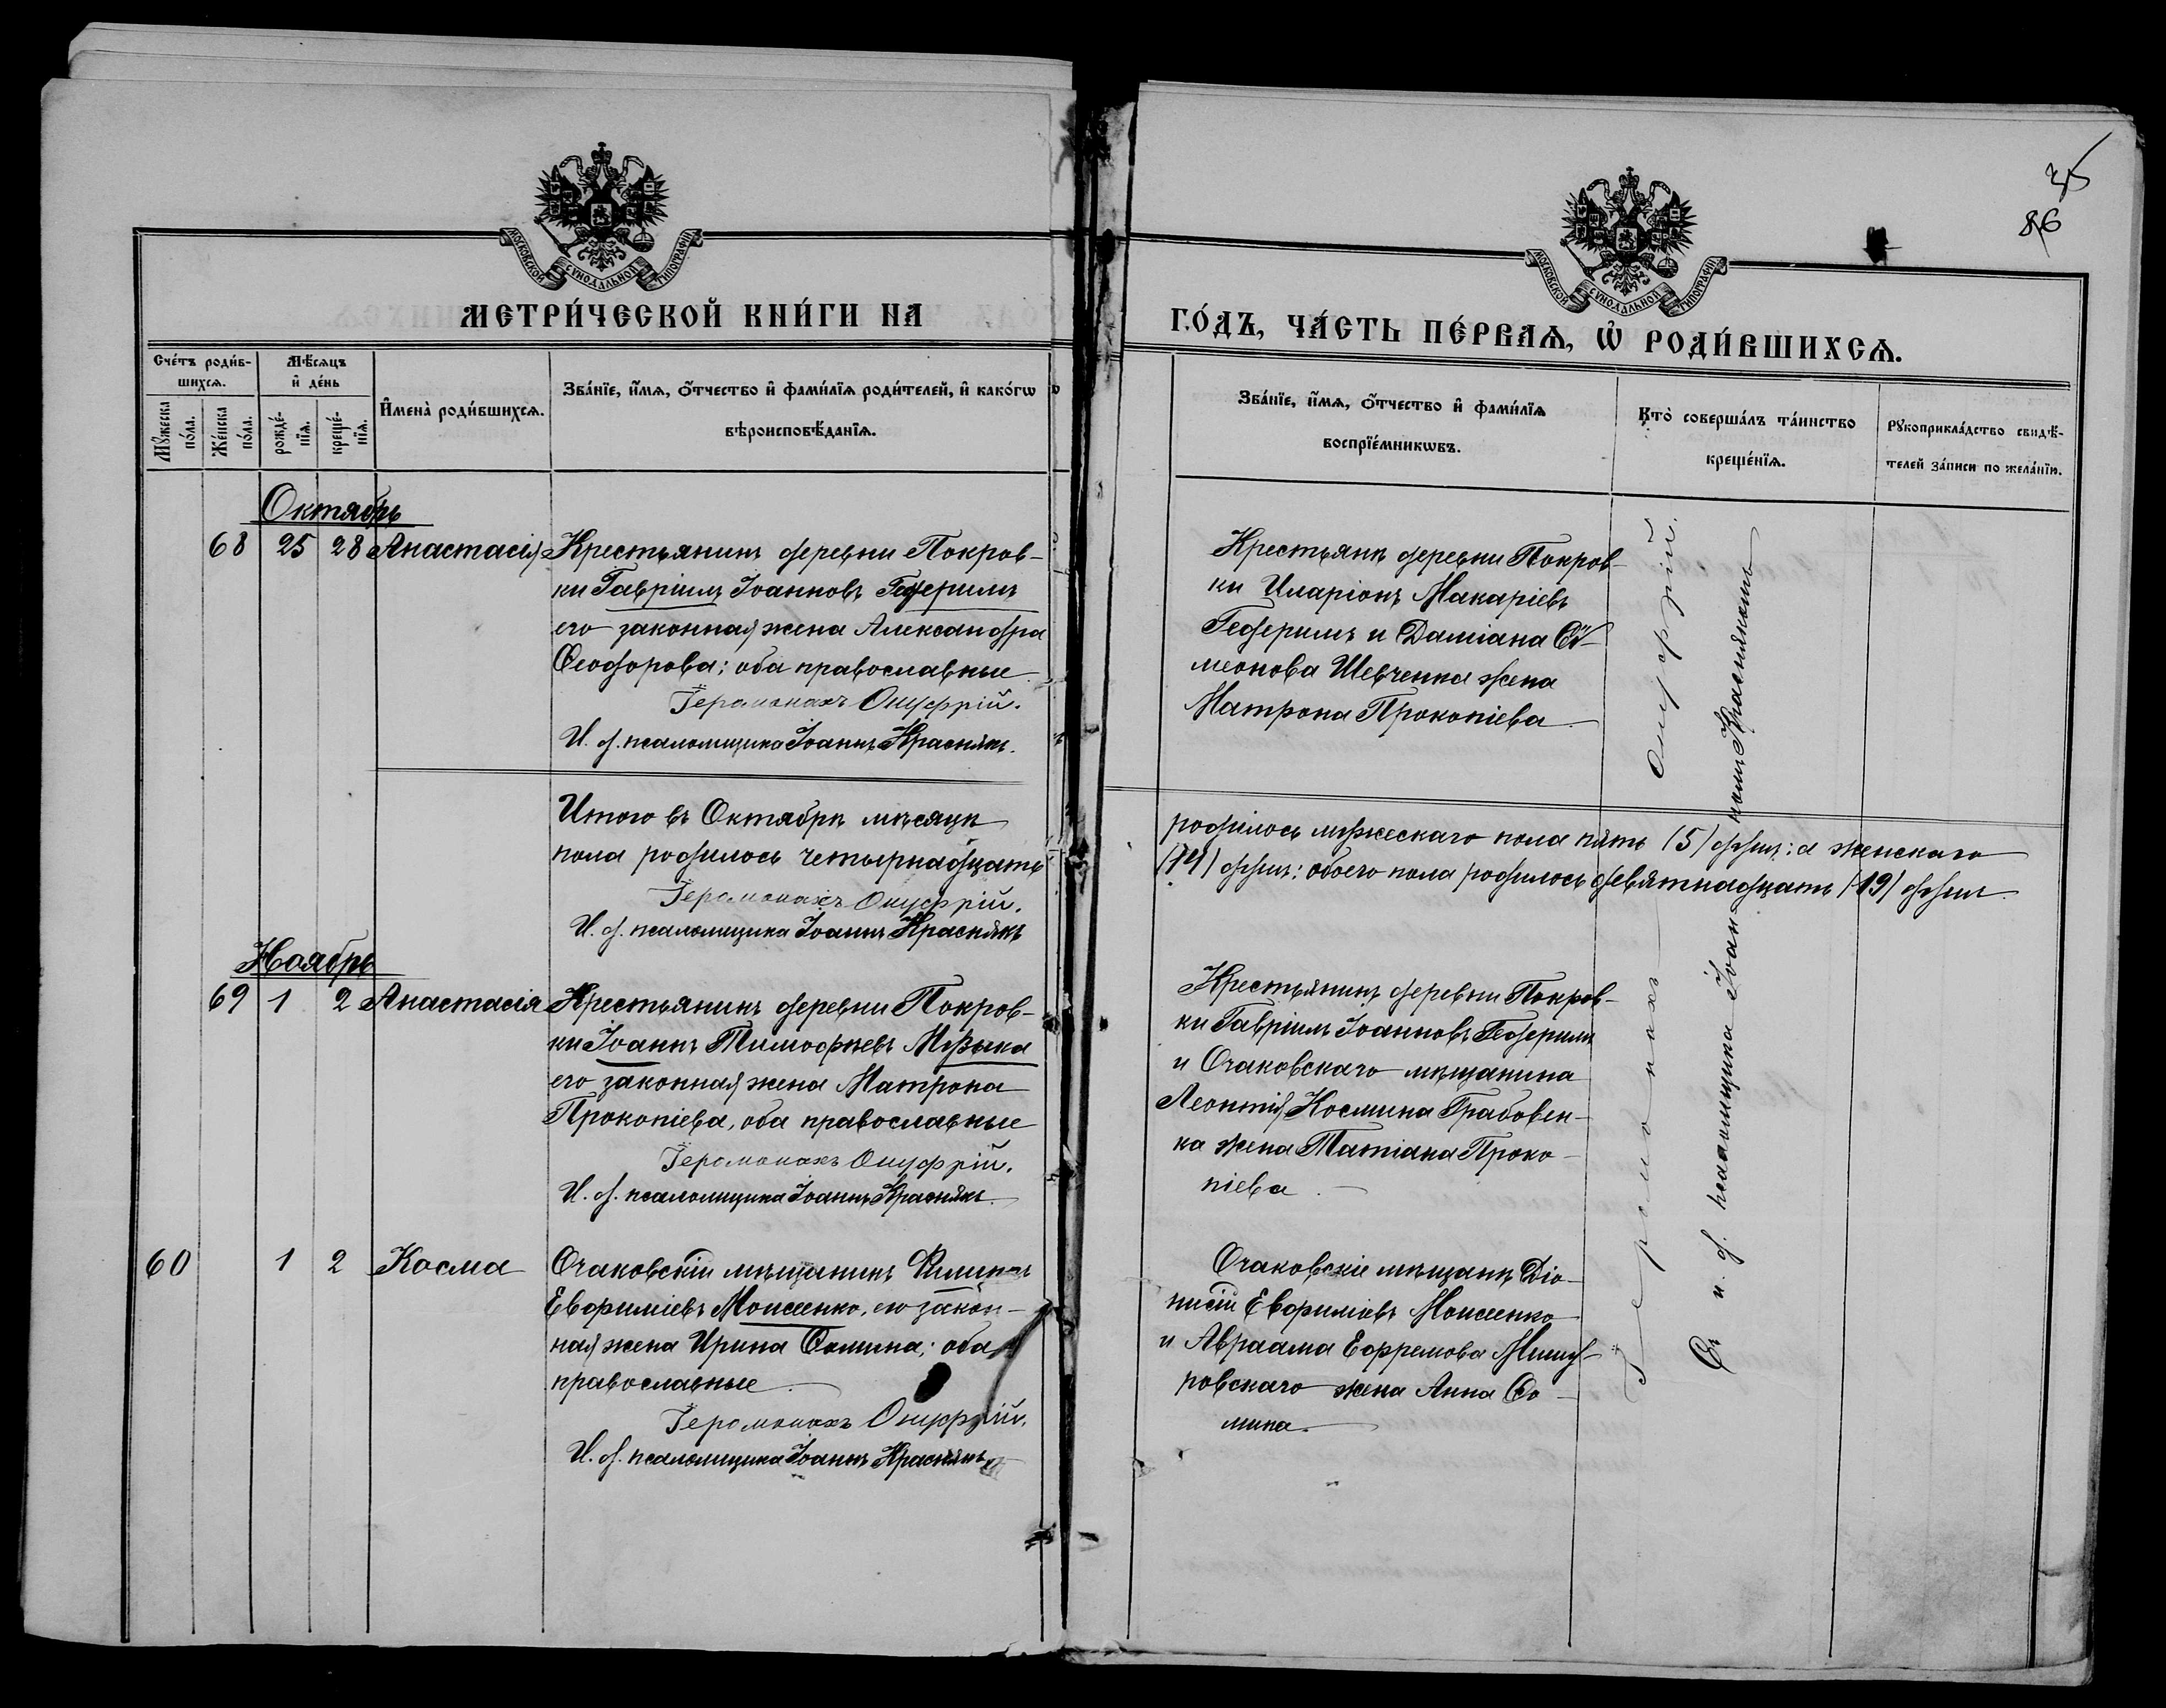 35
86
МОСКОВСКОЙ СѴНОДАЛЬНОЙ ТИПОГРАФІИ
МОСКОВСКОЙ СѴНОДАЛЬНОЙ ТИПОГРАФІИ
МЕТРИ́ЧЕСКОЙ КНИ́ГИ НА
ГО́ДЪ, ЧА́СТЬ ПЕ́РВАѦ, Ѡ҆ РОДИ́ВШИХСѦ.
Сче́тъ роди́в-
шихсѧ.
Мꙋ́жеска
по́ла.
Же́нска
по́ла.
Мѣ́сѧцъ
и҆ де́нь
рожде́-
нїѧ.
креще́-
нїѧ.
И҆мена̀ роди́вшихсѧ.
Зва́нїе, и҆́мѧ, ѻ҆́тчество и҆ фами́лїѧ роди́телей, и҆ како́гѡ
вѣроисповѣ́данїѧ.
Зва́нїе, и҆́мѧ, ѻ҆́тчество и҆ фами́лїѧ
воспрїе́мникѡвъ.
Кто̀ соверша́лъ та́инство
креще́нїѧ.
Рꙋкоприкла́дство свидѣ́-
телей за́писи по жела́нїю.
Октябрь
68 25 28 Анастасія
Крестьянинъ деревни Покров-
ки Гавріилъ Іоанновъ Гедеримъ
его законная жена Александра
Ѳеодорова; оба православные
Іеромонахъ Онуфрій.
И. д. псаломщика Іоаннъ Краснякъ.
Крестьяне деревни Покров-
ки Иларіонъ Макаріевъ
Гедеримъ и Даміана Сѵ-
меонова Шевченка жена
Матрона Прокопіева
Итого въ Октябрѣ мѣсяцѣ
родилось мужескаго пола пять (5) душъ: а женскаго
пола родилось четырнадцать
(14) душъ: обоего пола родилось девятнадцать (19) душъ.
Іеромонахъ Онуфрій.
И. д. псаломщика Іоаннъ Краснякъ
Ноябрь
69 1 2 Анастасія
Крестьянинъ деревни Покров-
ки Іоаннъ Тимофѣевъ Музыка
его законная жена Матрона
Прокопіева, оба православные
Іеромонахъ Онуфрій.
И. д. псаломщика Іоаннъ Краснякъ.
Крестьянинъ деревни Покров-
ки Гавріилъ Іоанновъ Гедеримъ
и Очаковскаго мѣщанина
Леонтія Космина Грабовен-
ка жена Татіана Проко-
піева
60 1 2 Косма
Очаковскій мѣщанинъ Филиппъ
Евфиміевъ Моисеенко, его закон-
ная жена Ирина Ѳомина; оба
православные
Іеромонахъ Онуфрій.
И. д. псаломщика Іоаннъ Краснякъ
Очаковскіе мѣщане Діо-
нисій Евфиміевъ Моисеенко
и Авраама Ефремова
ровскаго жена Анна Ѳо-
мина.
Іеромонахъ Онуфрій.
Съ и. д. псаломщика Іоанномъ Краснякомъ